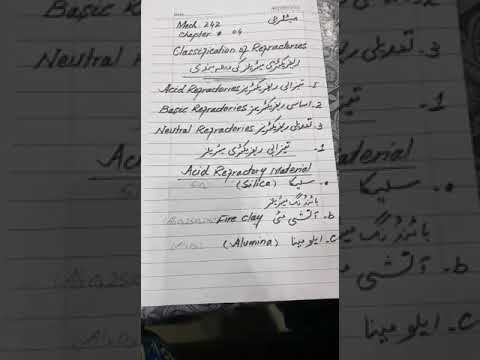 Mech 242 میٹریل
Chapter # 04
Classification of Refractories
ریفریکٹری میٹریلز کی درجہ بندی
1. تیزابی ریفریکٹریز Acid Refractories
2. اساسی ریفریکٹریز Basic Refractories
3. تعدیلی ریفریکٹریز Neutral Refractories
1- تیزابی ریفریکٹری میٹریلز
Acid Refractory Material
a. سلیکا (Silica)
بائنڈنگ میٹریلز
b. آتشی مٹی Fire Clay
c. ایلومینا (Alumina)